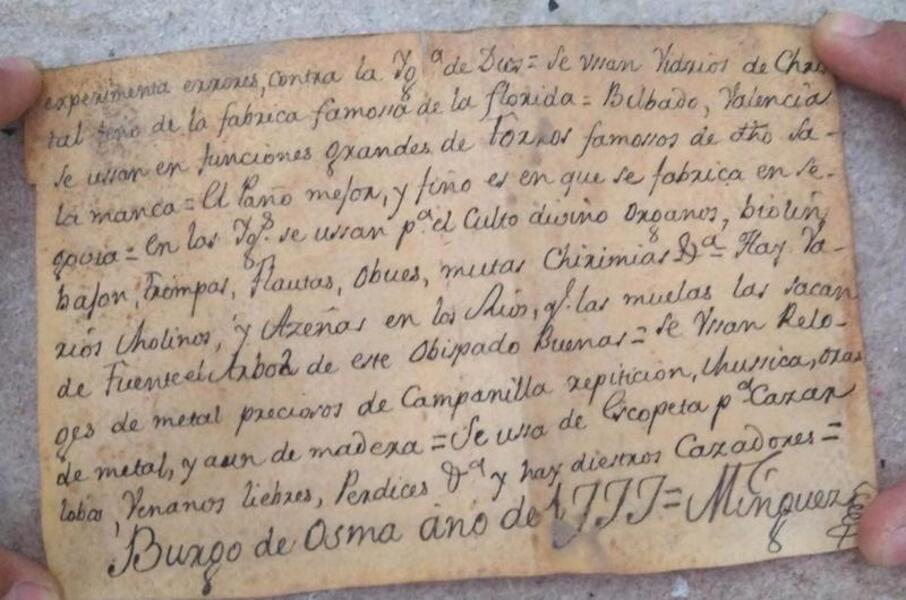 experimenta errores, contra la Yg.ª de Dios = Se ussan Vidrios de Chris
tal fino de la fabrica famossa de la florida = Bilbado, Valencia
se ussan en funciones grandes de torros famossos de dho Sa-
lamanca = El Paño mejor, y fino es en que se fabrica en Se-
govia = en las Ygs. se ussan p.ª el Culto divino organos, biolin,
bajon, trompas, Flautas, obues, mutas Chirimias &ª = Hay Va-
rios Molinos, y Azeñas en los Rios, q.e las muelas las sacan
de Fuente el Arbol de este Obispado Buenas = se Vssan Relo-
ges de metal preciosos de Campanilla repiticion, Mussica, oras
de metal, y aun de madera = Se ussa de Escopeta p.ª Cazar
lobos, Venanos liebres, Perdices &ª y hay diestros Cazadores =
Burgo de Osma año de 1777 = Minguez